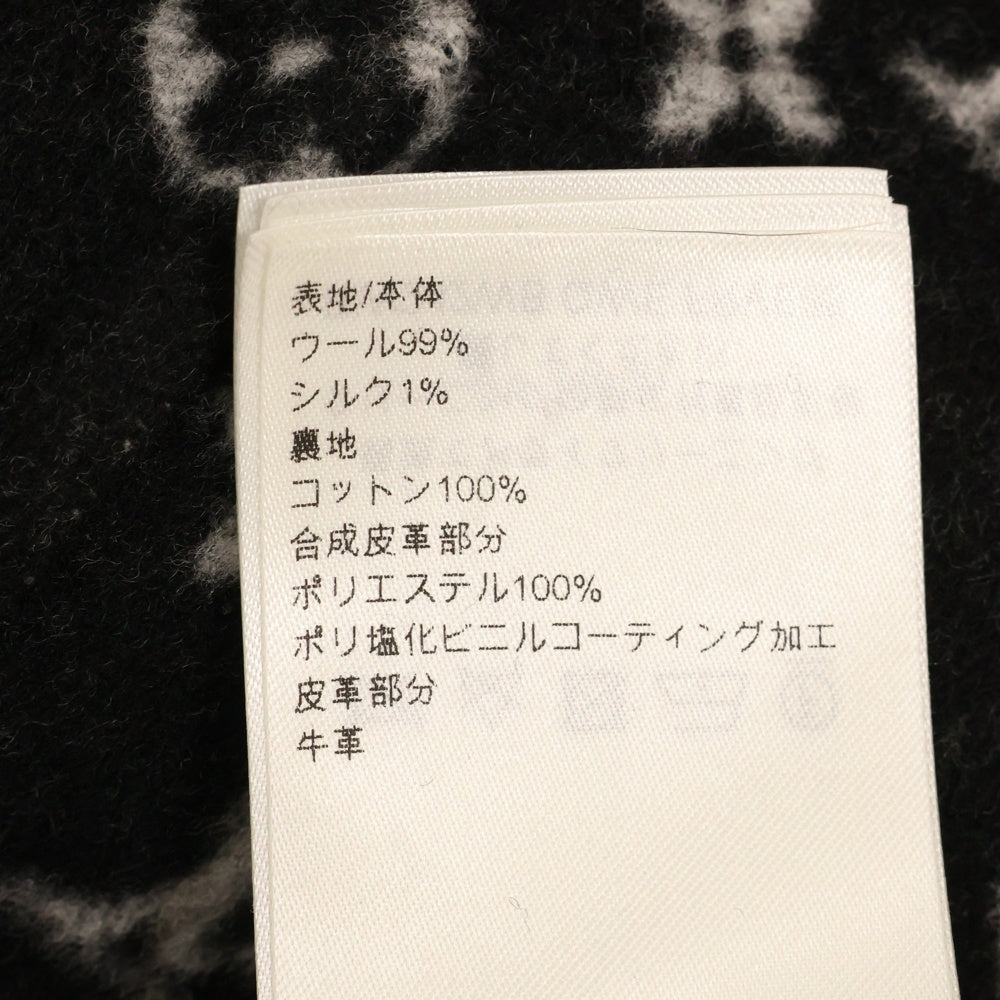 表地/本体
ウール99%
シルク1%
裏地
コットン100%
合成皮革部分
ポリエステル100%
ポリ塩化ビニルコーティング加工
皮革部分
牛革